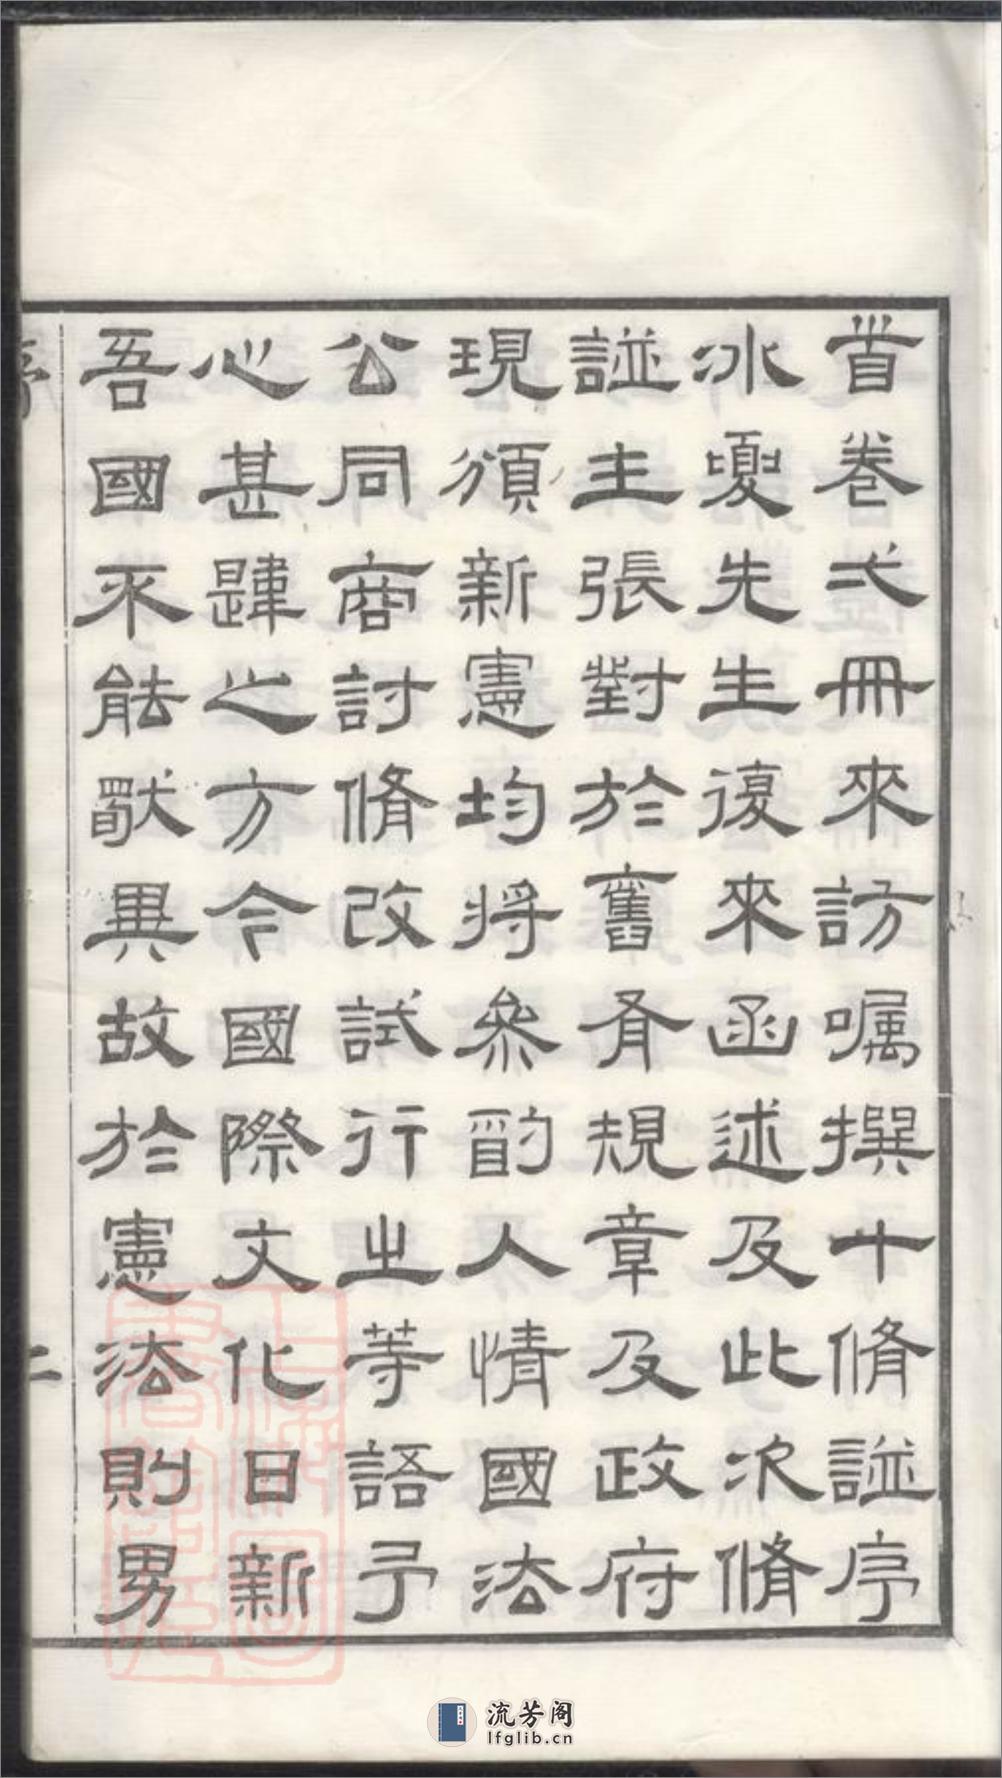 首卷弍冊來訪嘱撰十脩諩序
冰夔先生復來函述及此次脩
諩主張對於舊有規章及政府
現頒新憲均將叅酌人情國法
公同商討脩改試行之等語予
心甚韙之方今國際文化日新
吾國不能獸異故於憲法則男
序
二
流芳阁
lfglib.cn